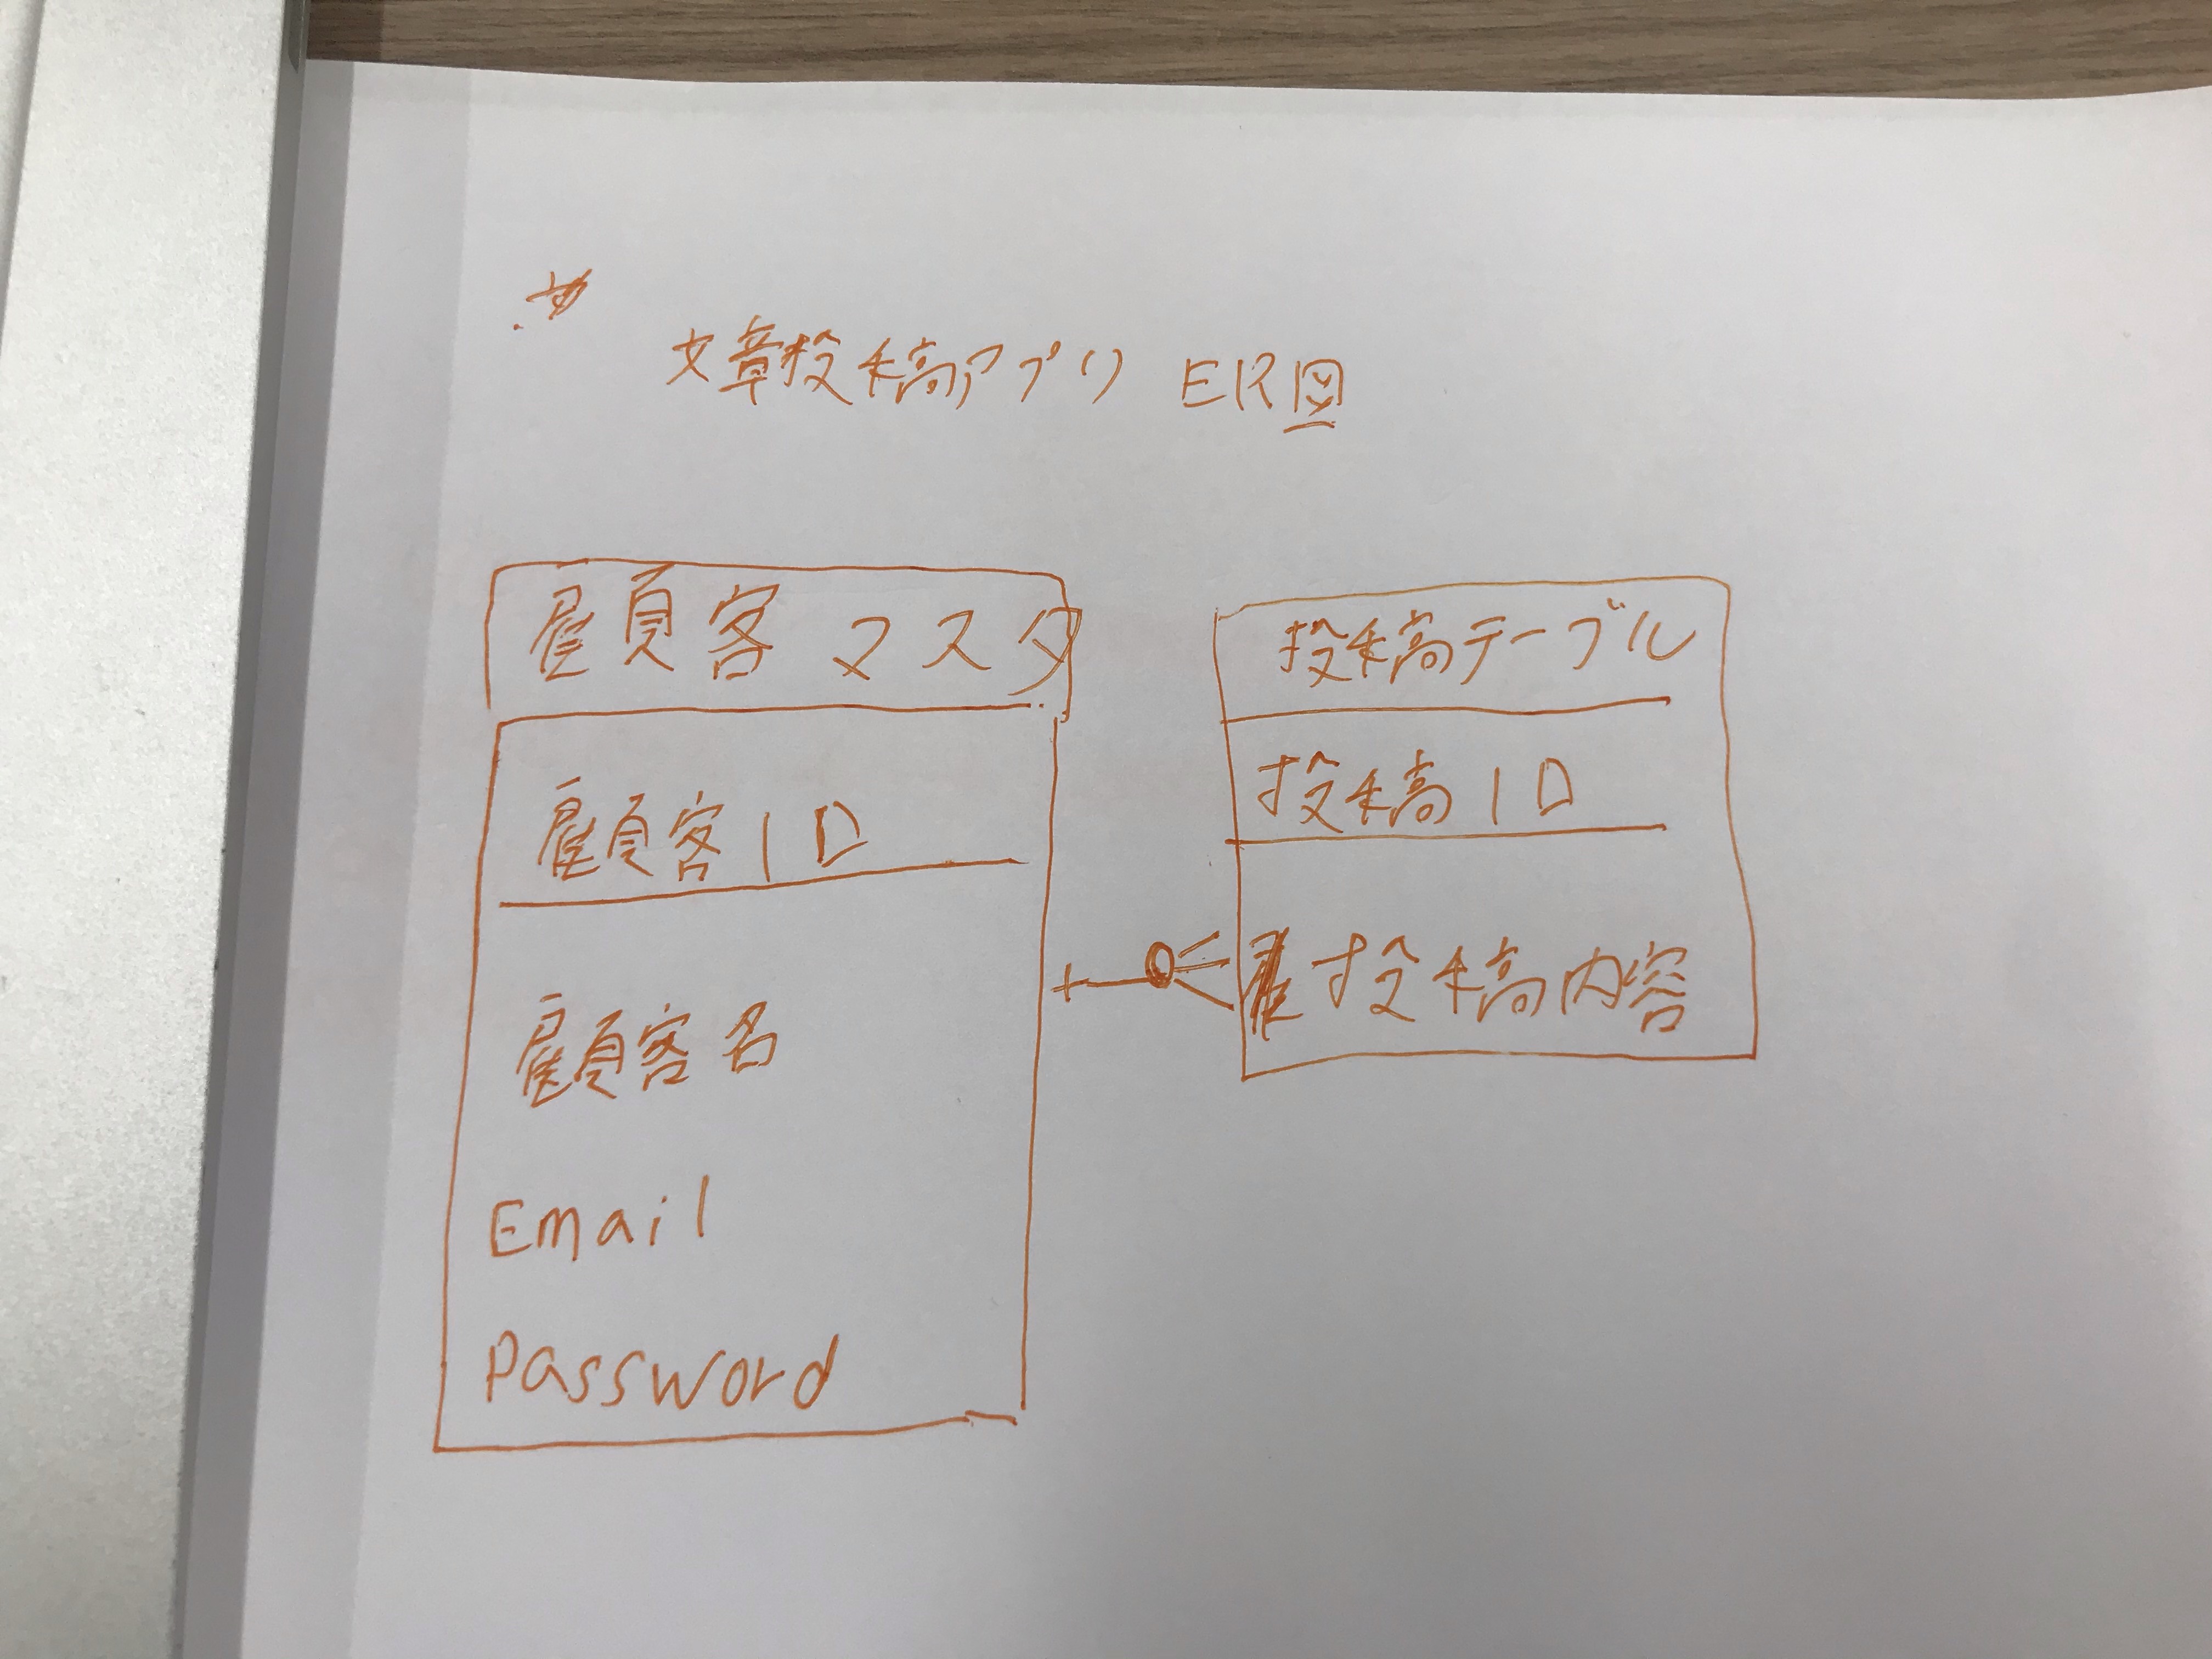 文章投稿アプリ ER図
顧客マスタ
顧客ID
顧客名
Email
Password
投稿テーブル
投稿ID
投稿内容